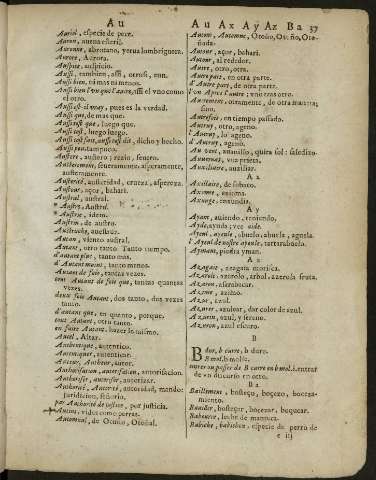 Au
Auriol, especie de pexe.
Auron, auena esteril.
Auronne, abrotano, yerua lombriguera.
Aurore, Aurora.
Auspice, auspicio.
Aussi, tambien, assi, otrosi, con.
Aussi bien, ni mas ni menos.
Aussi bien l'vn que l'autre, assi el vno como
el otro.
Aussi est-il vray, pues es la verdad.
Aussi que, de mas que.
Aussi tost que, luego que.
Aussi tost, luego luego.
Aussi tost fait, aussi tost dit, dicho y hecho.
Aussi peu, tampoco.
Austere, austero; rezio, seuero.
Austerement, seueramente, asperamente,
austeramente.
Austerité, austeridad, crueza, aspereza.
Austour, açor, bahari.
Austral, austral.
Austre, Austro.
Austrie, idem.
Austrin, de austro.
Austruche, auestruz.
Autan, viento austral.
Autant, otro tanto. Tanto tiempo.
d'autant plus, tanto mas.
d'Autant moins, tanto menos.
Autant de fois, tantas vezes.
tout Autant de fois que, tantas quantas
vezes.
deux fois Autant, dos tanto, dos vezes
tanto.
d'autant que, en quanto, porque.
tous autant, otro tanto.
en faire Autant, hazer lo mismo.
Autel, Altar.
Authentique, autentico.
Autentiquer, autenticar.
Auteur, Autheur, autor.
Authorisation, autorisation, autorisacion.
Authoriser, autoriser, autorizar.
Authorité, Autorité, autoridad, mando:
juridicion, señorio.
par Authorité de iustice, por justicia.
Autour, vide comme perras.
Automnal, de Otoño, Otoñal.
Au Ax Ay Az Ba 37
Autom, Automne, Otoño, Otoño, Oto-
ñada.
Autour, açor, bahari.
Autour, al rededor.
Autre, otro, otra.
Autre part, en otra parte.
d'Autre part, de otra parte.
l'vn Apres l'autre, vno tras otro.
Autrement, otramente, de otra manera;
sino.
Autrefois, en tiempo passado.
Autruy, otro, ageno.
l'Autruy, lo ageno.
d'Autruy, ageno.
Au vent, ventanillo, quita sol: saledizo.
Auuernas, vua prieta.
Auxiliaire, auxiliar.
Ax
Axillaire, de sobaco.
Axiome, axioma.
Axunge, enxundia.
Ay
Ayant, auiendo, teniendo.
Ayde, ayuda; vee aide.
Ayeul, ayeule, abuelo, abuela, aguela.
l'Ayeul de nostre ayeule, tartarabuelo.
Aymant, piedra yman.
Az
Azagaye, azagaia morisca.
Azerole, azerolo, arbol, azerola fruta.
Azaron, asarabacar.
Azime, azimo.
Azur, azul.
Azurer, azulear, dar color de azul.
Azurin, azul, y sereno.
Azuré, azul escuro.
B
B dur, b carre, b duro.
B mol, b molle.
entrer ou passer de B carre en b mol, entrar
de vn discurso en otro.
Ba
Baillement, bostezar, boçezo, boceza-
miento.
Baailler, bostezar, bocezar, boquear.
Babeurre, leche de manteca.
Babiche, babichon, especie de perro de
e iij